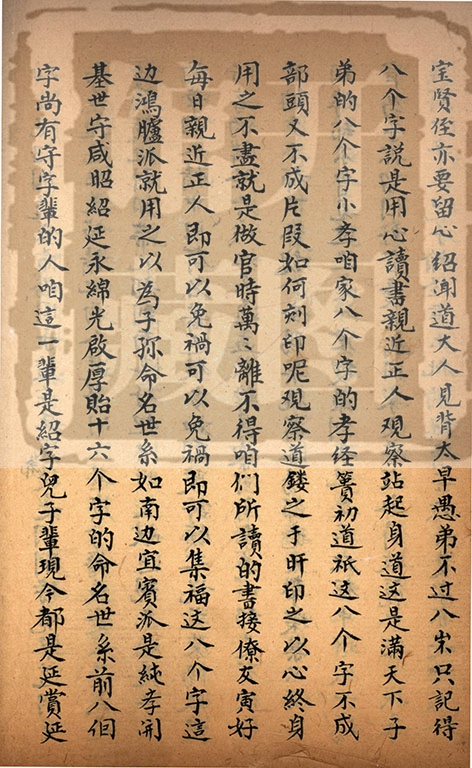 宝贤侄亦要留心绍闻道大人見背太早愚弟不过八岁只記得
八个字説是用心讀書親近正人观察站起身道这是滿天下子
弟的八个字小孝咱家八个字的孝经簣初道衹这八个字不成
部頭又不成片段如何刻印呢观察道鏤之于肝印之以心終身
用之不盡就是做官時萬〻離不得咱们所讀的書接僚友寅好
每日親近正人即可以免禍可以免禍即可以集福这八个字這
边鴻臚派就用之以為子孫命名世系如南边宜賓派是純孝開
基世守咸昭紹延永綿光啟厚貽十六个字的命名世系前八個
字尚有守字輩的人咱這一輩是紹字兒子輩現今都是延賞延